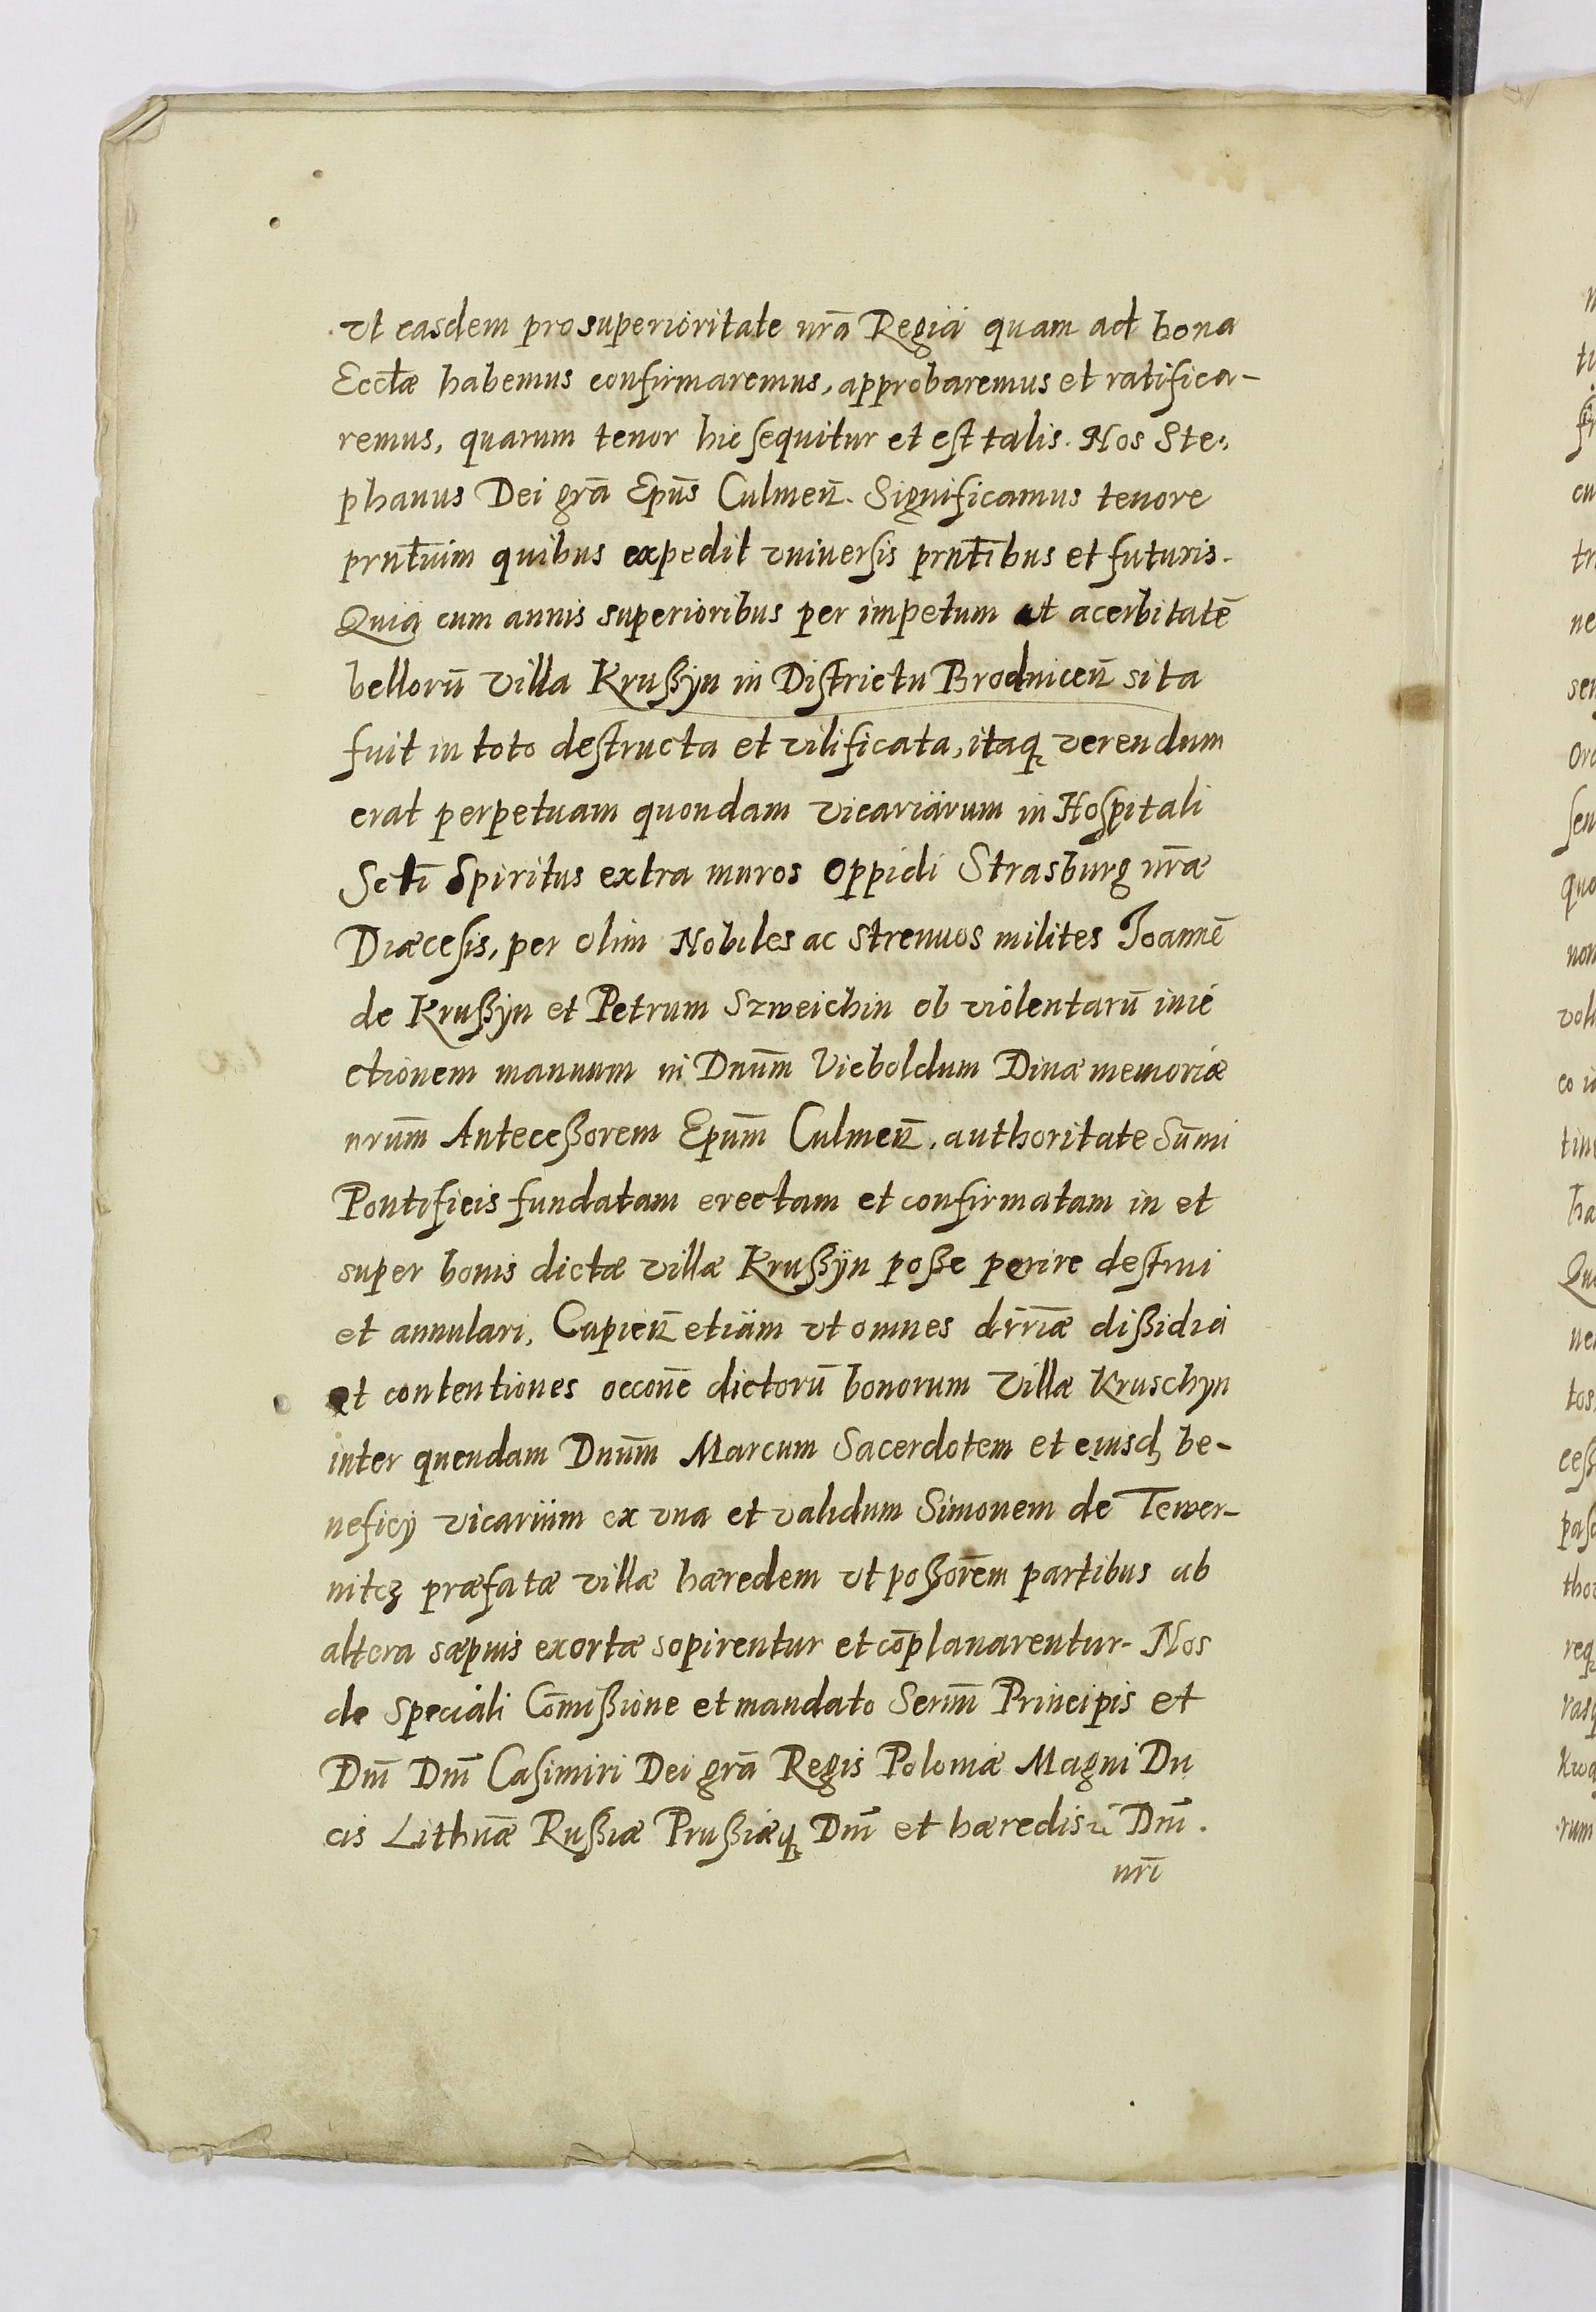 Ut easdem pro superioritate nrā Regia quam ad bona
Ecctæ habemus confirmaremus, approbaremus et ratifica-
remus, quarum tenor hic sequitur et est talis. Nos Ste-
phanus Dei grā Epūs Culmeń. Significamus tenore
prntiūm quibus expedit universis prntībus et futuris.
Quia cum annis superioribus per impetum et acerbitatē
bellorū villa Krußÿn in Districtu Brodniceń sita
fuit in toto destructa et vilificata, itaq verendum
erat perpetuam quondam vicariarum in Hospitali
Sctī Spiritus extra muros Oppidi Strasburg nræ
Diæcesis, per olim Nobiles ac strenuos milites Joannē
de Krußÿn et Petrum Szweichin ob violentarū inie
ctionem manuum in Dnūm Vicboldum Divæ memoriæ
nrūm Anteceßorem Epūm Culmeń. authoritate Sūmi
Pontificis fundatam erectam et confirmatam in et
super bonis dictæ villæ Krußÿn poße perire destrui
et annulari, Cupień etiam ut omnes drriæ dißidia
et contentiones occonē dictorū bonorum Villæ Kruschyn
inter quendam Dnūm Marcum Sacerdotem et eiusd be-
neficÿ vicarium ex una et validum Simonem de Tewer-
nitcz præfatæ villæ hæredem ut poßorēm partibus ab
altera sæpius exortæ sopirentur et cōplanarentur. Nos
de speciali Cōmißione et mandato Sermī Principis et
Dnī Dnī Casimiri Dei grā Regis Poloniæ Magni Du
cis Lithnæ Rußiæ Prußiæq Dnī et hæredis Dnī.
nrī